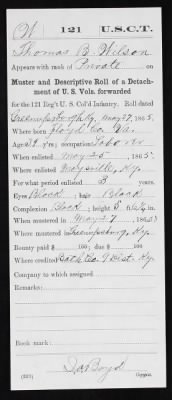 W 121 U.S.C.T.
Thomas B. Wilson
Appears with rank of Private on
Muster and Descriptive Roll of a Detachment of U. S. Vols. forwarded
for the 121 Reg't U. S. Col'd Infantry. Roll dated
Greenupsburgh Ky, May 27, 1865.
Where born Floyd Co. Va.
Age 39 y'rs; occupation Laborer
When enlisted May 25, 1865.
Where enlisted Maysville, Ky.
For what period enlisted 3 years.
Eyes Black; hair Black
Complexion Black; height 5 ft. in.
When mustered in May 27, 1865
Where mustered in Greenupsburg, Ky.
Bounty paid $ 100; due $ 100
Where credited Bath Co. 9 Dist. Ky.
Company to which assigned
Remarks:
Book mark:
Boyd
Copyist.